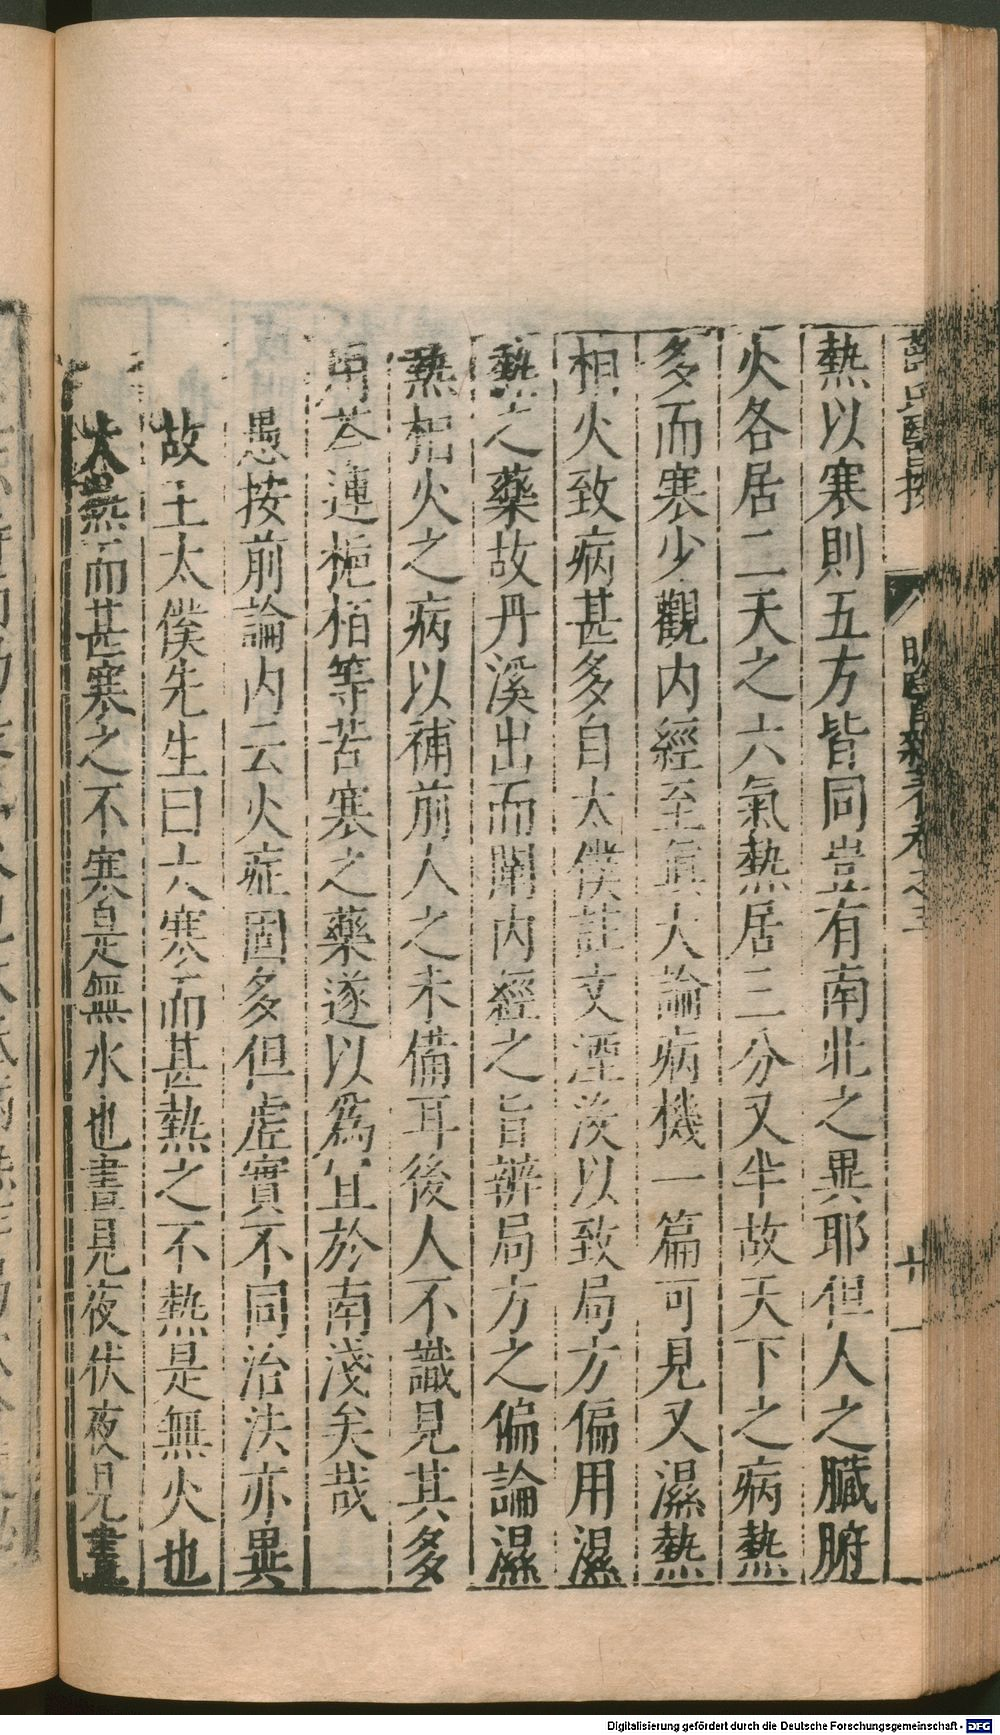 薛氏醫按 明醫雜著卷之三 廿一
熱以寒則五方皆同豈有南北之異耶但人之臟腑
火各居二天之六氣熱居三分又半故天下之病熱
多而寒少觀内經至眞大論病機一篇可見又濕熱
相火致病甚多自太僕註文湮沒以致局方偏用濕
熱之藥故丹溪出而闡内經之旨辨局方之偏論濕
熱相火之病以補前人之未備耳後人不識見其多
用芩連梔栢等苦寒之藥遂以爲宜於南淺矣哉
愚按前論内云火症固多但虛實不同治法亦異
故王太僕先生曰大寒而甚熱之不熱是無火也
大熱而甚寒之不寒是無水也晝見夜伏夜見晝
Digitalisierung gefördert durch die Deutsche Forschungsgemeinschaft - DFG